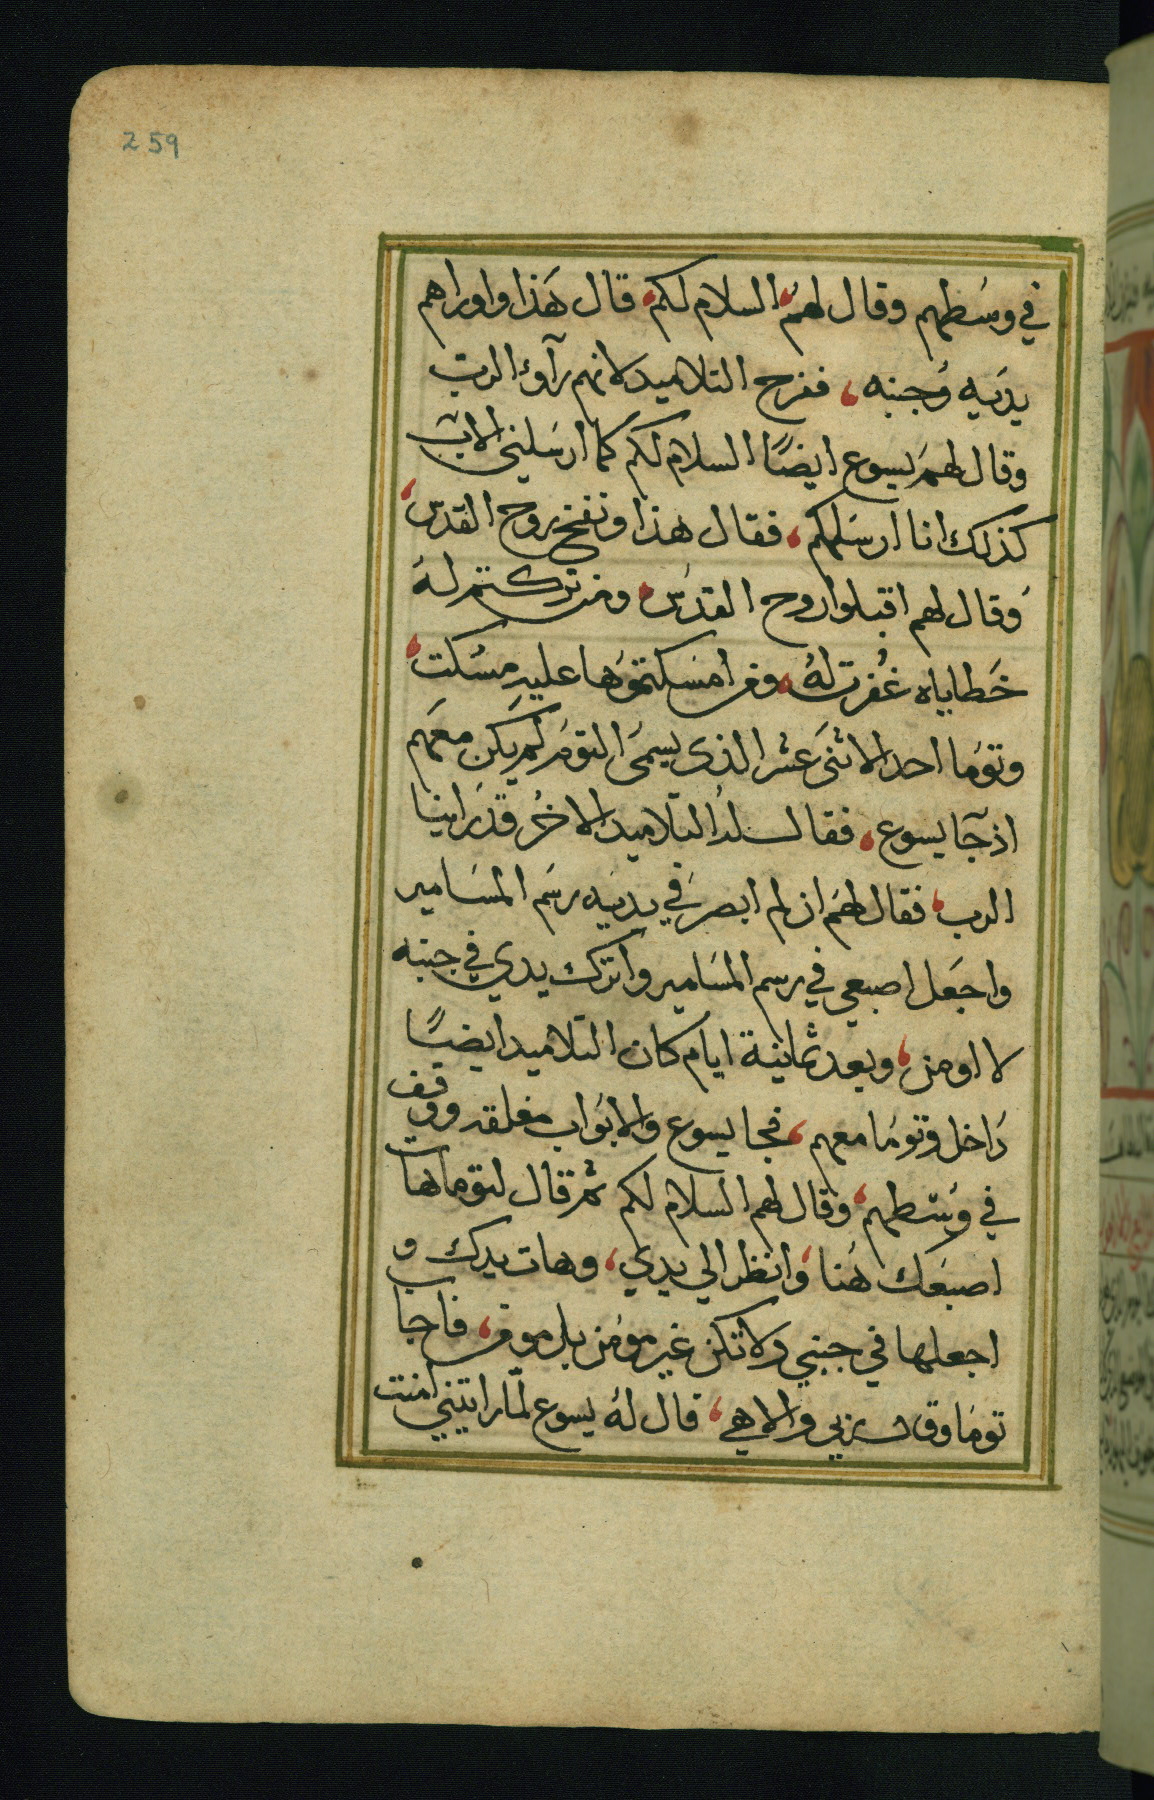 259
في وسَطهم وقال لهم السلام لكم، قال هَذا واوراهم
يدَيه وُجنبه، ففرح التلاميد لانهم رآوءا الرب
وقال لهمَ يسوع ايضًا السلام لكم كما ارسَلني الاب
كذلك انا ارسَلكم، فقال هذا ونفخ روح القدس،
وُقال لهم اقبلوا روح القدس، ومن تركتم لهُ
خَطاياه غُفرت لهُ، ومن امسَكتموَها عليهِ مسُكت،
وتوَما احد الاثنىَ عشر الذى يسمىَ التومَ لم يكن معَهم
اذ جآ يسوع، فقال له التلاميد الاخُر قد رَاينا
الرب، فقال لهَم ان لم ابصرَ في يديَه رسَم المسَامير
واجَعل اصبعي في رسم المسَامير واترك يدي في جنبه
لا اومن، وبعد ثمانية ايام كان التلاميد ايضًا
دَاخل وتومَا معهم، فجا يسوع والابوَاب مغلقه ووقف
في وسَطهم، وقال لهم السلام لكم ثم قال لتوما هات
اصبعَك هُنا، وانظر الي يدي، وهات يدك و
اجعلها في جنبي ولا تكن غير مومَن بل مومن، فاجاب
تومَا وقال ربي والاهي، قال لهُ يسوع لمّا رايتني امنت